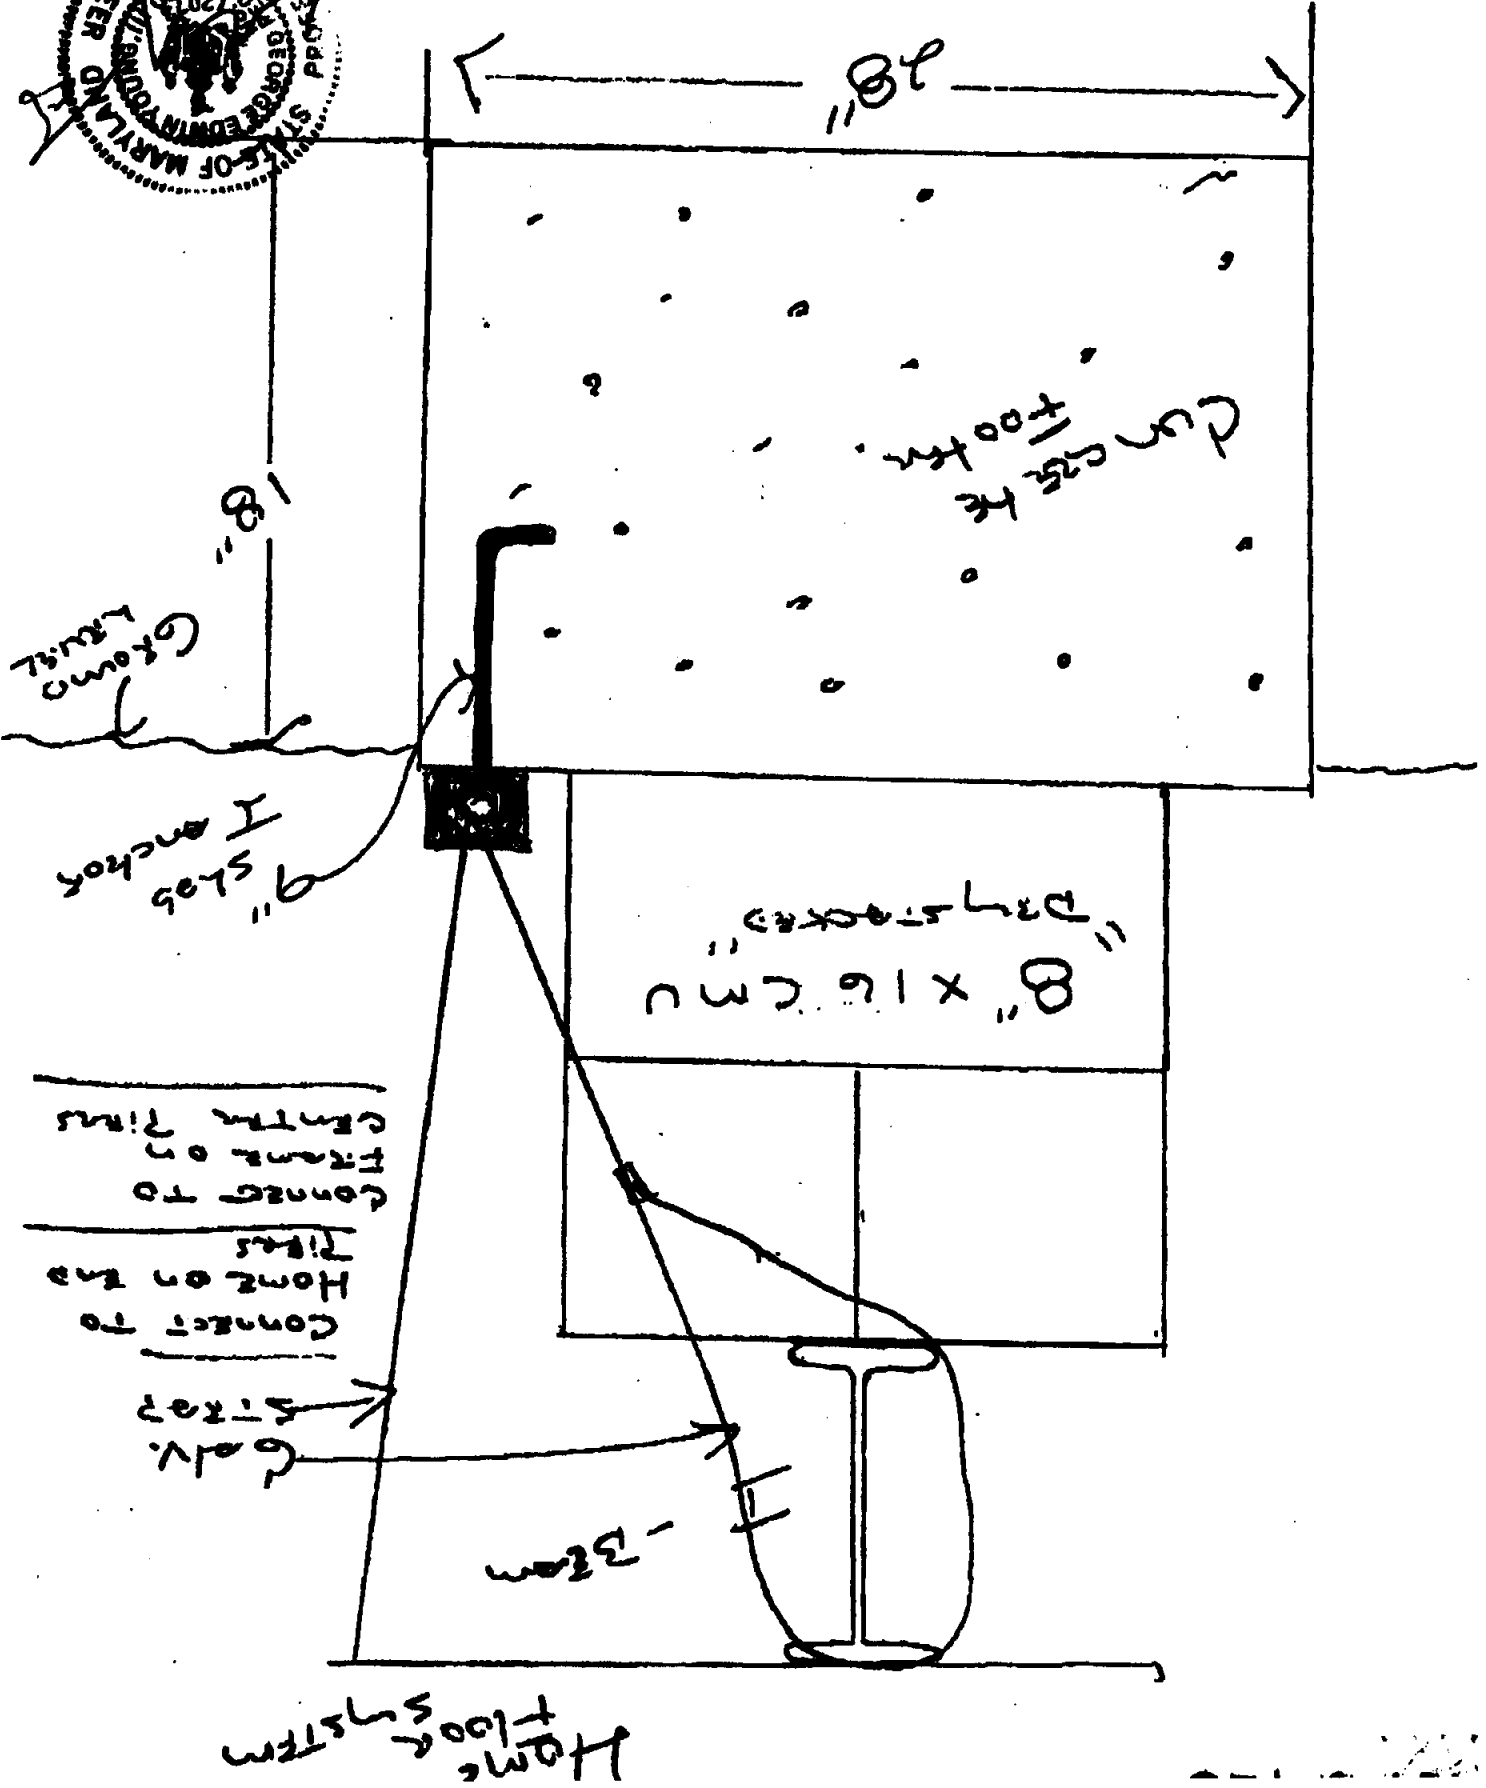 Home
Floor
System
Beam
Galv.
Strap
Connect to
Home on End
Piers
Connect to
Frame on
Center Piers
8" x 16 CMU
"Dry Stacked"
9"
Slab
I anchor
Ground
Level
18"
Concrete
Footer
28"
STATE OF MARYLAND
GEORGE EDWIN YOUNG